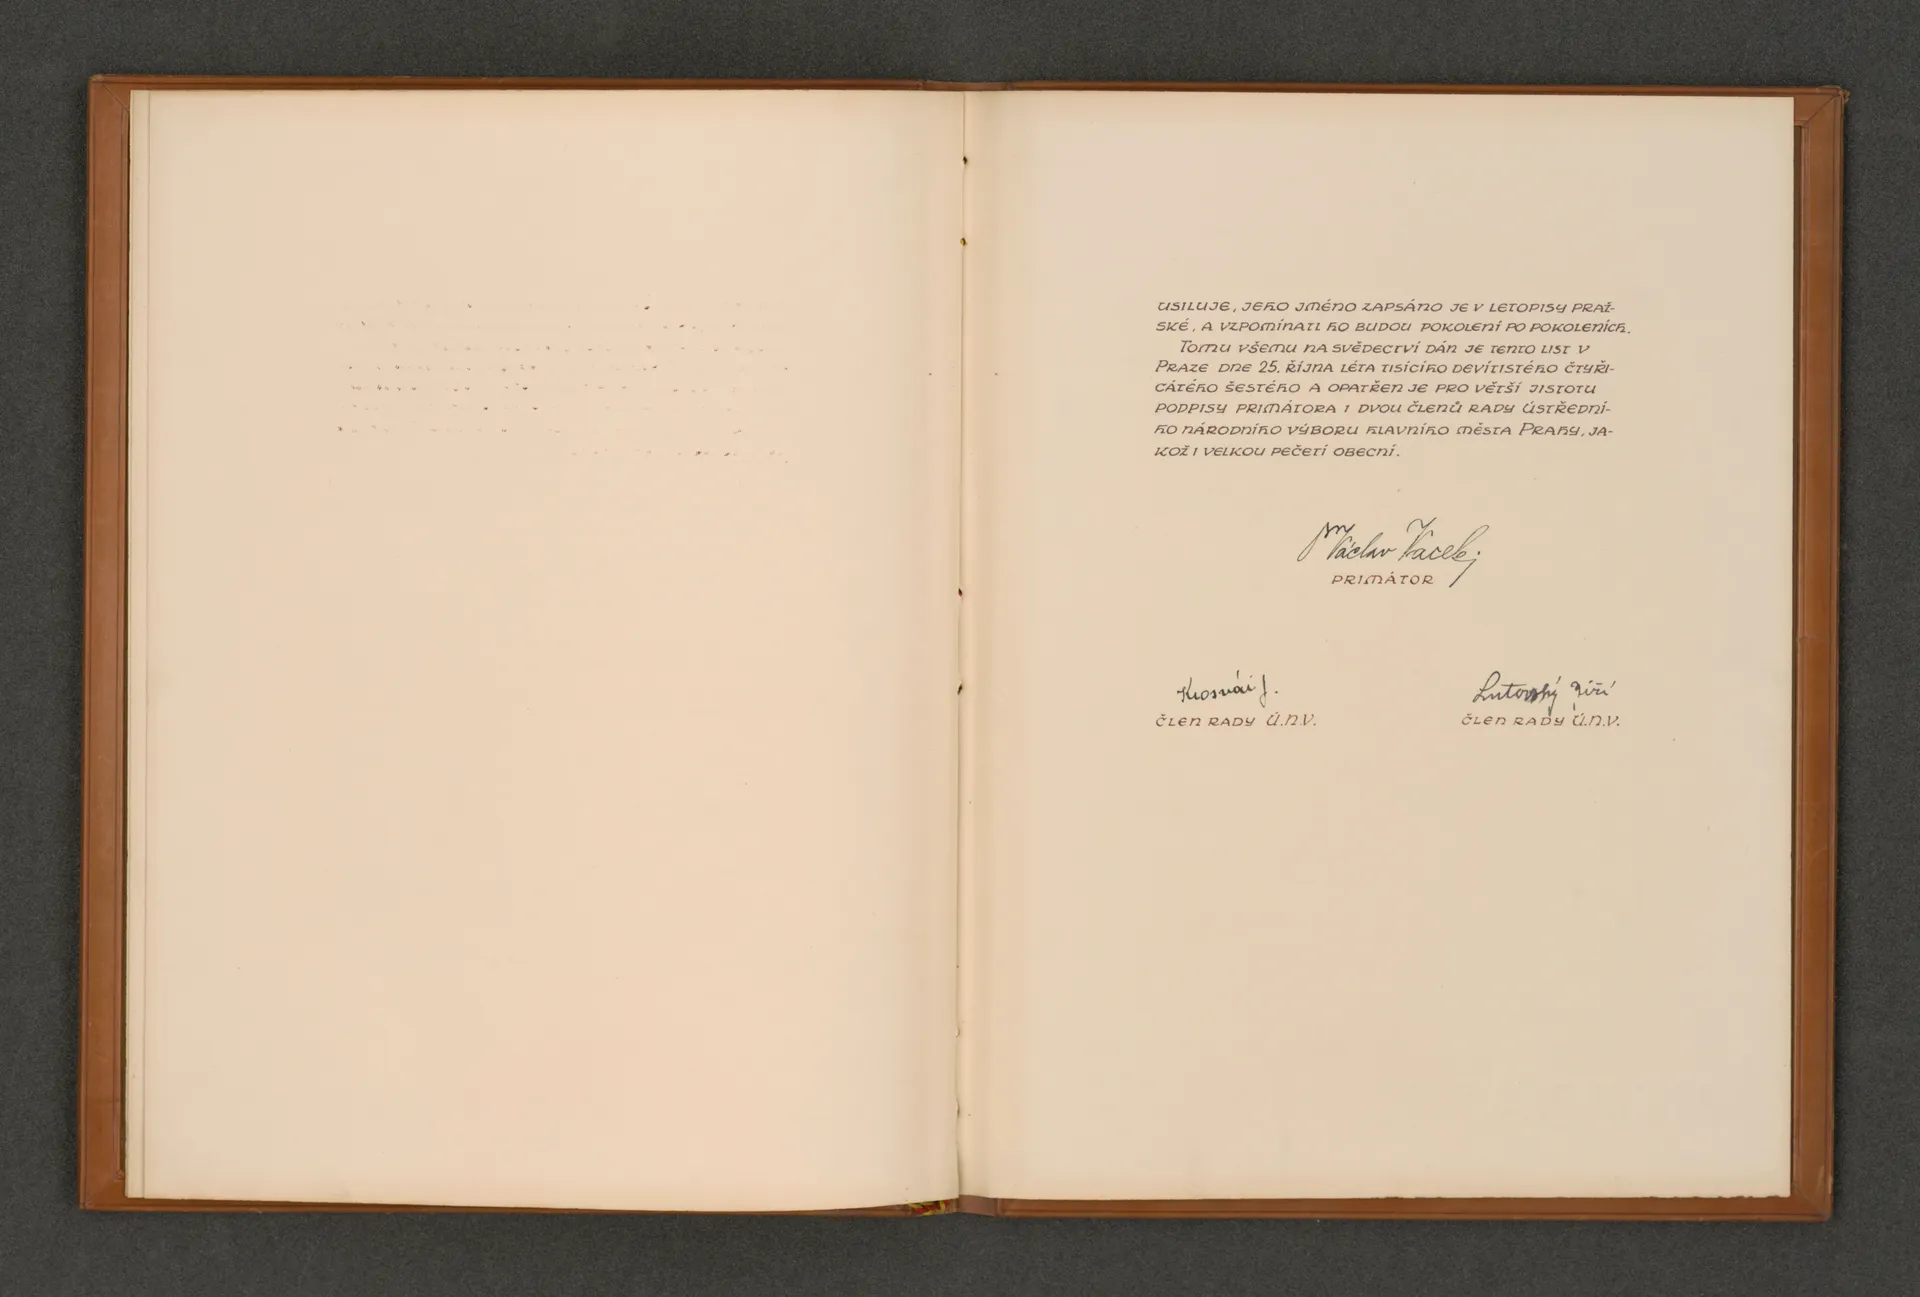 USILUJE, JEHO JMÉNO ZAPSÁNO JE V LETOPISY PRAŽ-
SKÉ, A VZPOMÍNATI HO BUDOU POKOLENÍ PO POKOLENÍCH.
TOMU VŠEMU NA SVĚDECTVÍ DÁN JE TENTO LIST V
PRAZE DNE 25. ŘÍJNA LÉTA TISÍCÍHO DEVÍTISTÉHO ČTYŘI-
CÁTÉHO ŠESTÉHO A OPATŘEN JE PRO VĚTŠÍ JISTOTU
PODPISY PRIMÁTORA I DVOU ČLENŮ RADY ÚSTŘEDNÍ-
HO NÁRODNÍHO VÝBORU HLAVNÍHO MĚSTA PRAHY, JA-
KOŽ I VELKOU PEČETÍ OBECNÍ.
Václav Vacek
PRIMÁTOR
J.
Jiří
ČLEN RADY Ú.N.V.
ČLEN RADY Ú.N.V.